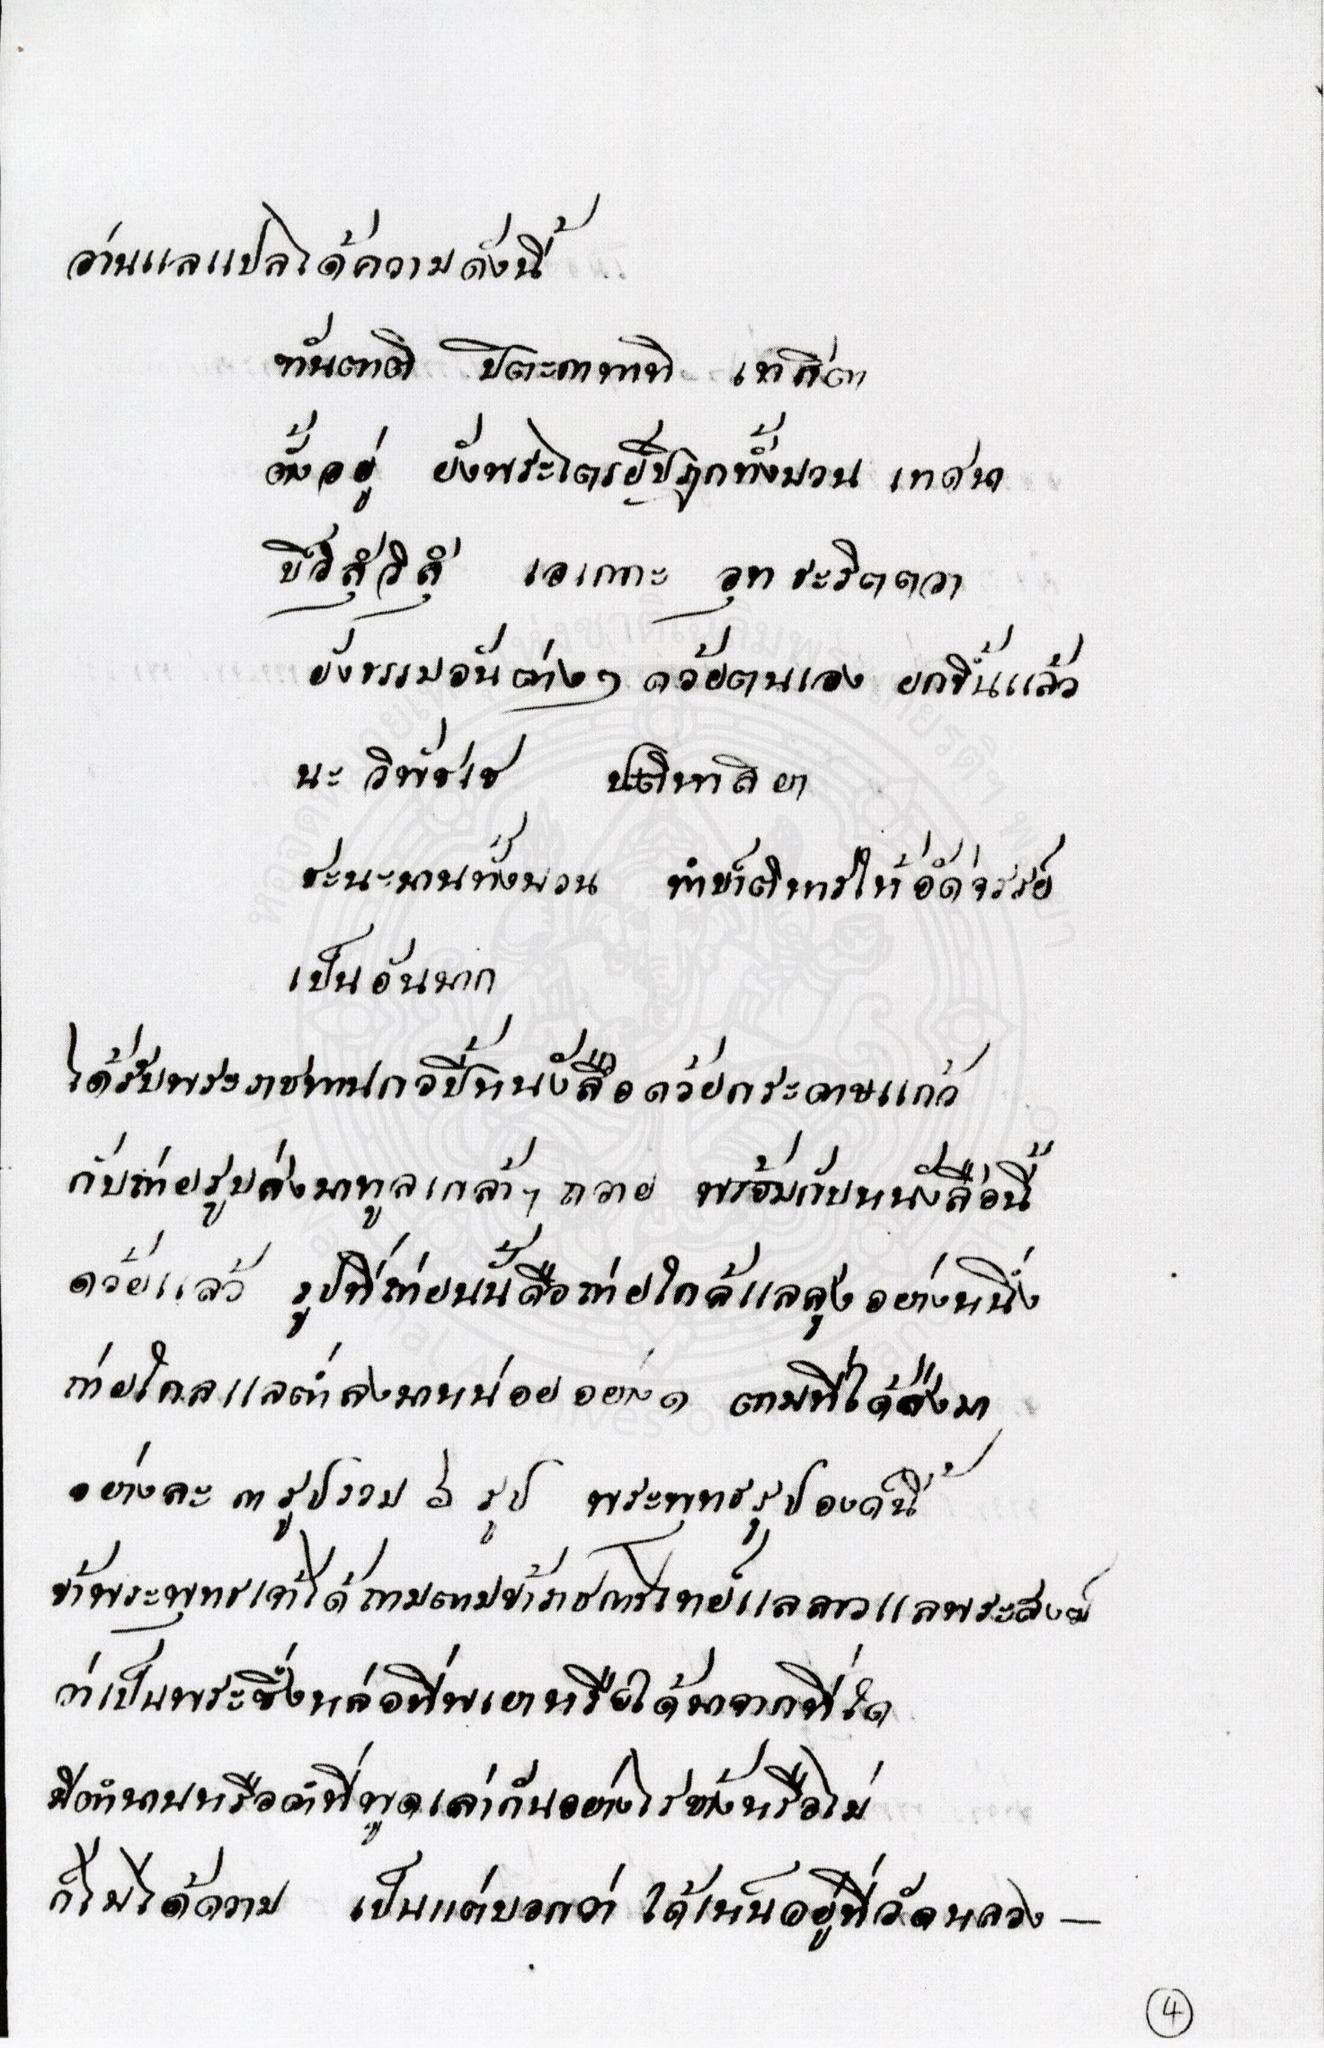 อ่านแลแปลได้ความดังนี้
ทันตาติ ปิตะกาทานิ เทสิตา
ตั้งอยู่ ยังพระไตรย์ปิฎกทั้งมวน เทศนา
ชีวิสุํวิสุํ เอเกกะ อุทธะริตตวา
ยังธรรมอันต่างๆ ด้วยตนเอง ยกขึ้นแล้ว
นะ วิพัชเช ปาติหาสิยา
ชะนะมานทั้งมวน ทำปาติหารให้อัดจรรย์
เป็นอันมาก
ได้รับพระราชทานกอปี้หนังสือด้วยกระดาษแก้ว
กับถ่ายรูปส่งมาทูลเกล้าฯ ถวาย พร้อมกับหนังสือนี้
ด้วยแล้ว รูปที่ถ่ายนั้นคือถ่ายใกล้แลสูงอย่างหนึ่ง
ถ่ายไกลแลต่ำลงมาหน่อยอย่าง ๑ ตามที่ได้ส่งมา
อย่างละ ๓ รูปรวม ๖ รูป พระพุทธรูปองค์นี้
ข้าพระพุทธเจ้าได้ถามตามข้าราชการไทย์แลลาวแลพระสงฆ์
ว่าเป็นพระซึ่งหล่อที่พเยาหรือได้มาจากที่ใด
มีตำนานหรือคำที่พูดเล่ากันอย่างไรบ้างหรือไม่
ก็ไม่ได้ความ เป็นแต่บอกว่า ได้เห็นอยู่ที่วัดหลวง —
4
หอจดหมายเหตุแห่งชาติเฉลิมพระเกียรติฯ พะเยา